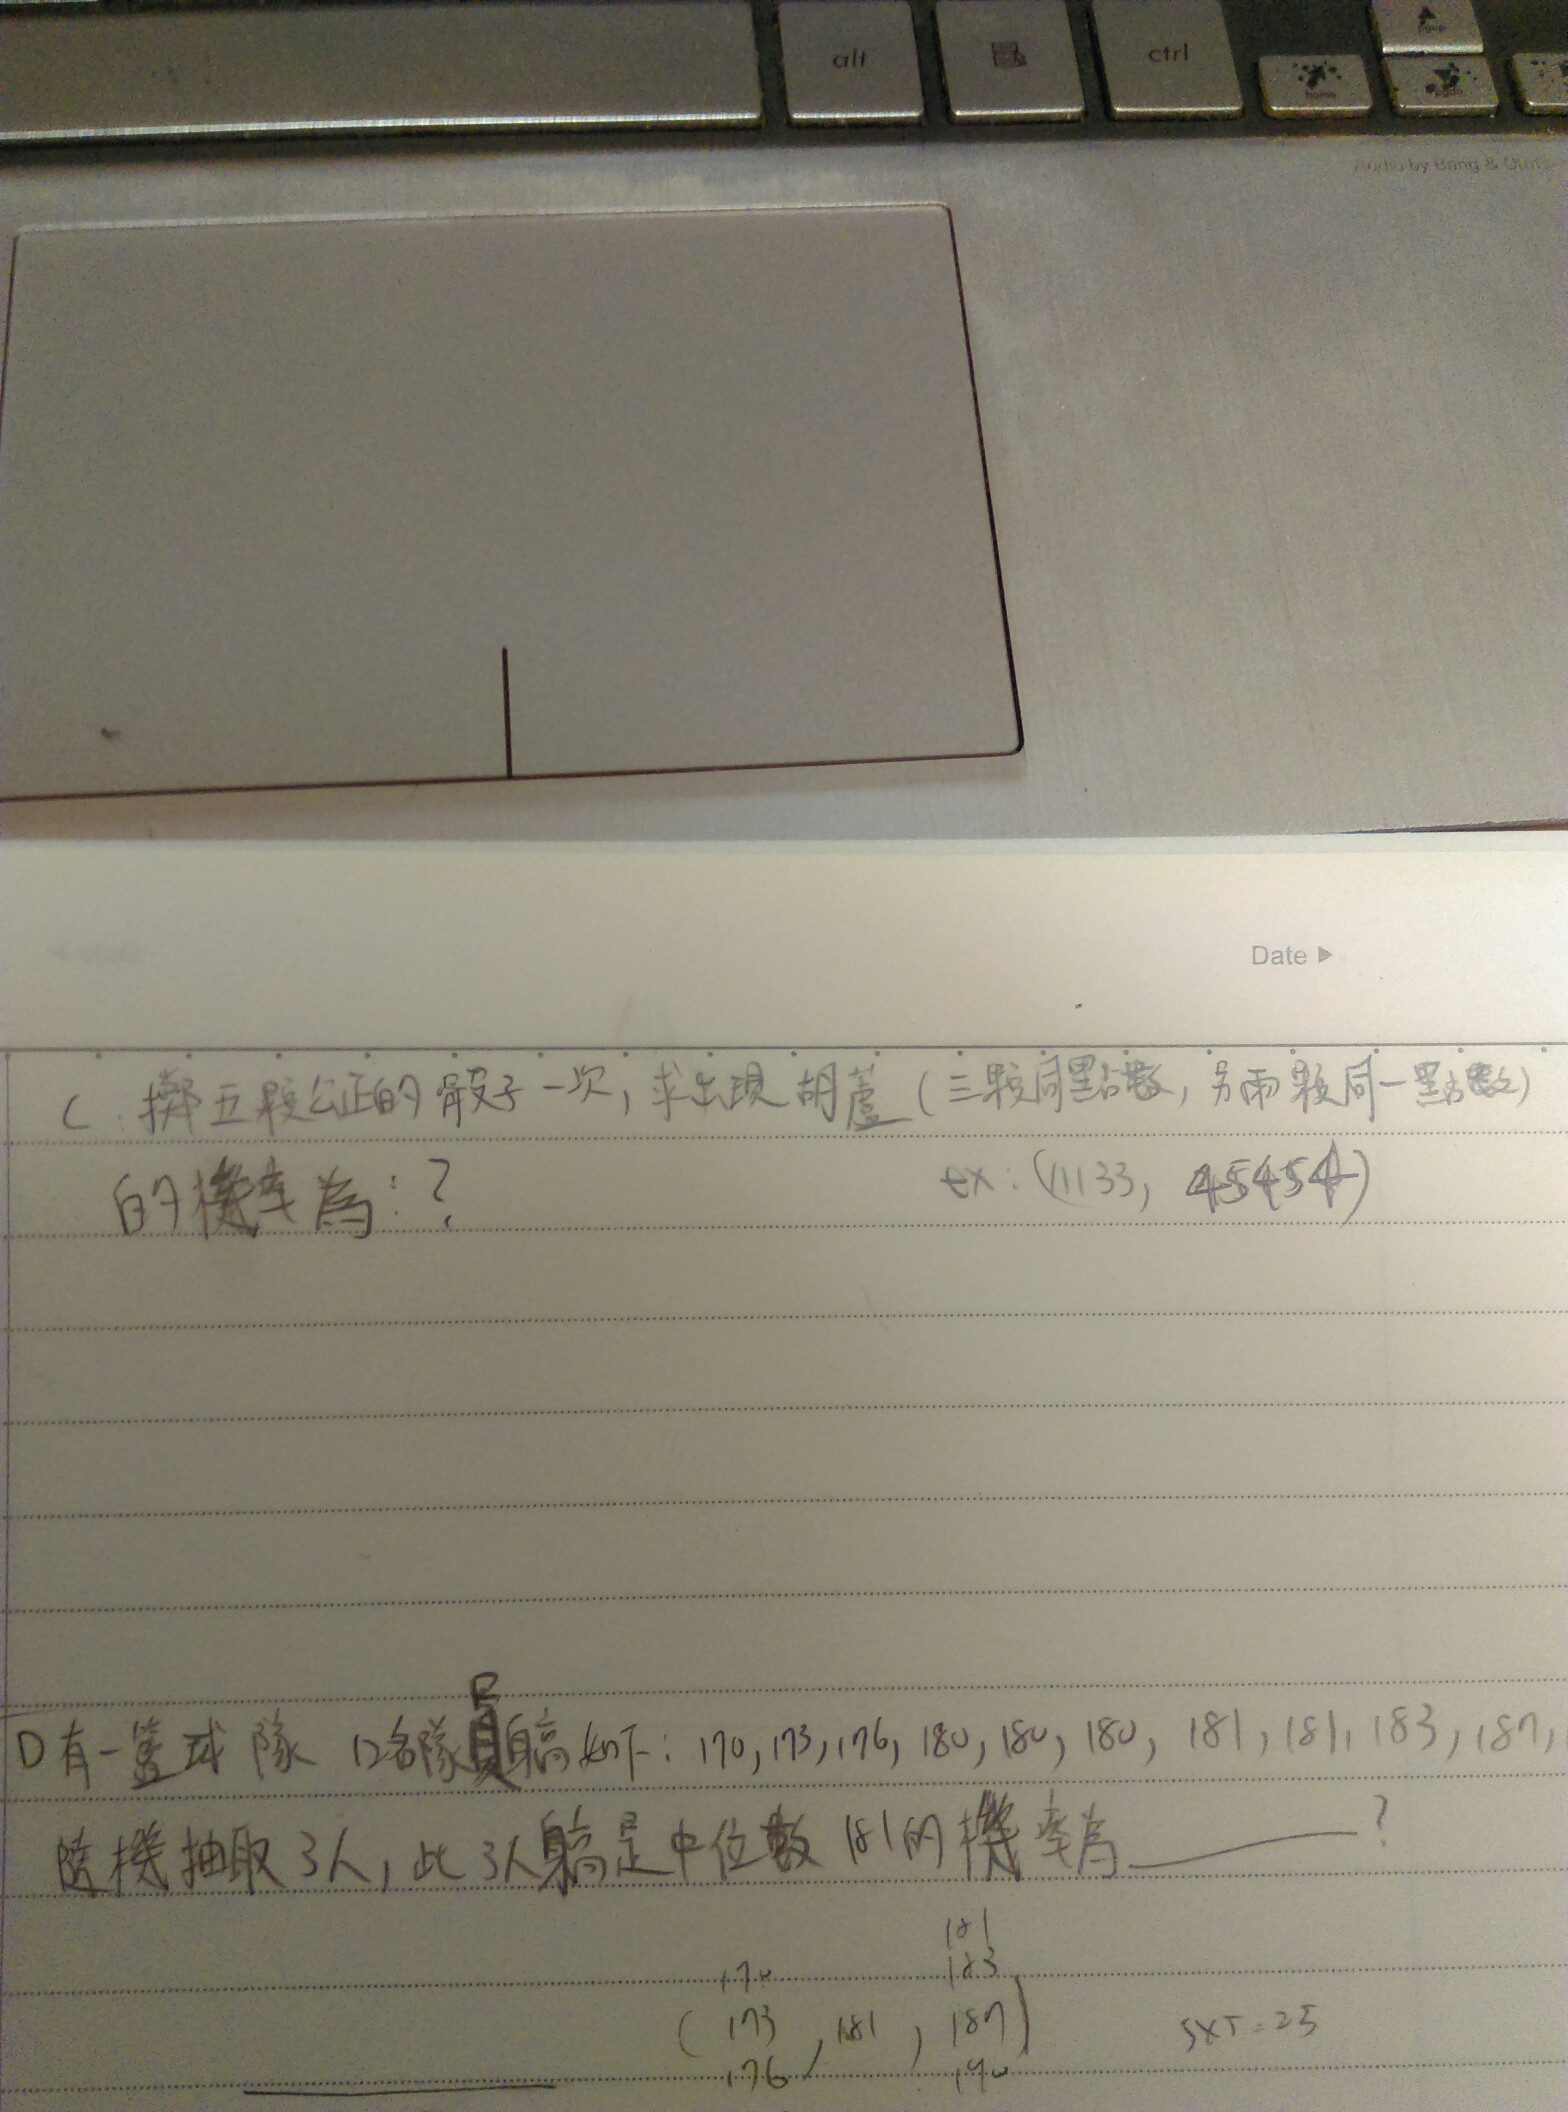 alt
ctrl
home
Audio by Bang &
Date
C. 擲五顆公正的骰子一次,求出現胡蘆(三顆同點數,另兩顆同一點數)
的機率為:?
ex:(11133, 45454)
D有一籃球隊 12名隊員身高如下:170,173,176,180,180,180,181,181,183,187,
隨機抽取3人,此3人身高是中位數181的機率為 ?
181
170 183
( 173 ,181 , 187 ) 5×5=25
176 190